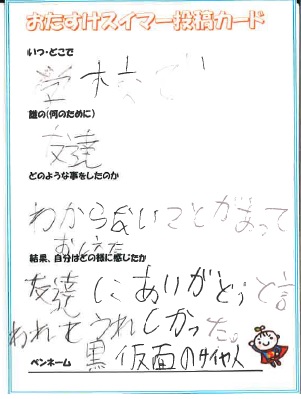 おたすけスイマー投稿カード
いつ・どこで
学校で
誰の(何のために)
友達
どのような事をしたのか
わからないことがあって
おしえた
結果、自分はどの様に感じたか
友達にありがとうと言
われてうれしかった。
ペンネーム 黒仮面のサイヤ人